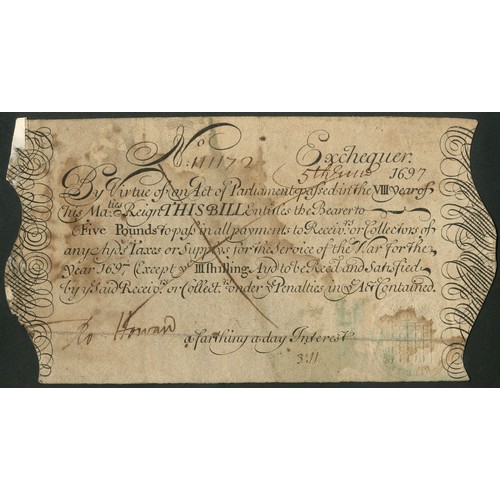 No: 111172 Exchequer.
5th June 1697
By Virtue of an Act of Parliament passed in the VIII year of
His Ma:ties Reign THIS BILL Entitles the Bearer to
Five Pounds to pass in all payments to Receivrs. or Collectors of
any Ayds Taxes or Supplys for the Service of the War for the
Year 1697 Except ye III Shilling Ayd to be Reced and Satisfied
by ye said Receivrs. or Collectrs. under ye Penalties in ye Act Contained.
Ro Howard
a farthing a day Interest
3:11